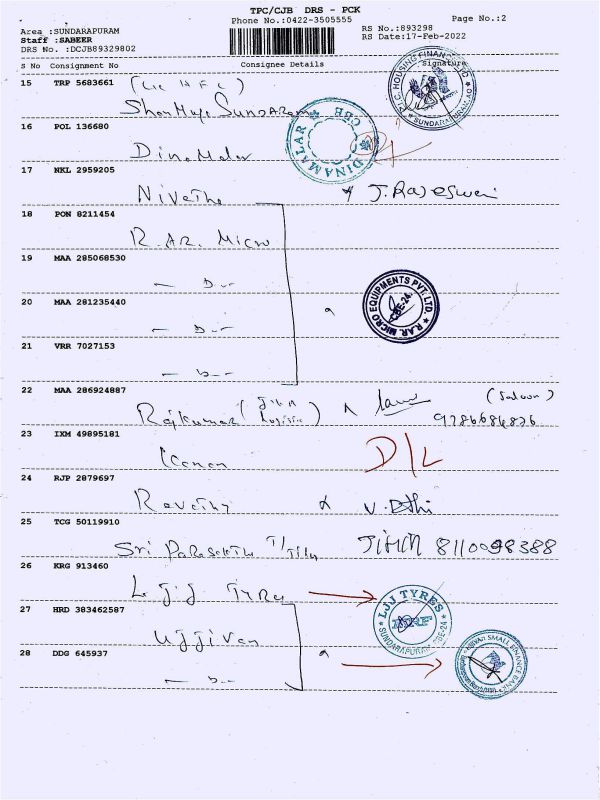 TPC/CJB DRS - PCK
Phone No.:0422-3505555
Page No.:2
Area :SUNDARAPURAM
Staff :SABEER
DRS No. :DCJB89329802
RS No.:893298
RS Date:17-Feb-2022
S No Consignment No Consignee Details Signature
15 TRP 5683661
16 POL 136680
DINAMALAR CBE
Dinamalar
17 NKL 2959205
Nivetha
18 PON 8211454
R.AR. Micro
19 MAA 285068530
20 MAA 281235440
R.AR. MICRO EQUIPMENTS PVT. LTD. CBE-24.
21 VRR 7027153
22 MAA 286924887
Rajkumar
23 IXM 49895181
D/L
24 RJP 2879697
Revathy
25 TCG 50119910
Sri 8110098388
26 KRG 913460
LJJ Tyres
LJJ TYRES MRF SUNDARAPURAM, CBE-24
27 HRD 383462587
Ujjivan
28 DDG 645937
UJJIVAN SMALL FINANCE BANK